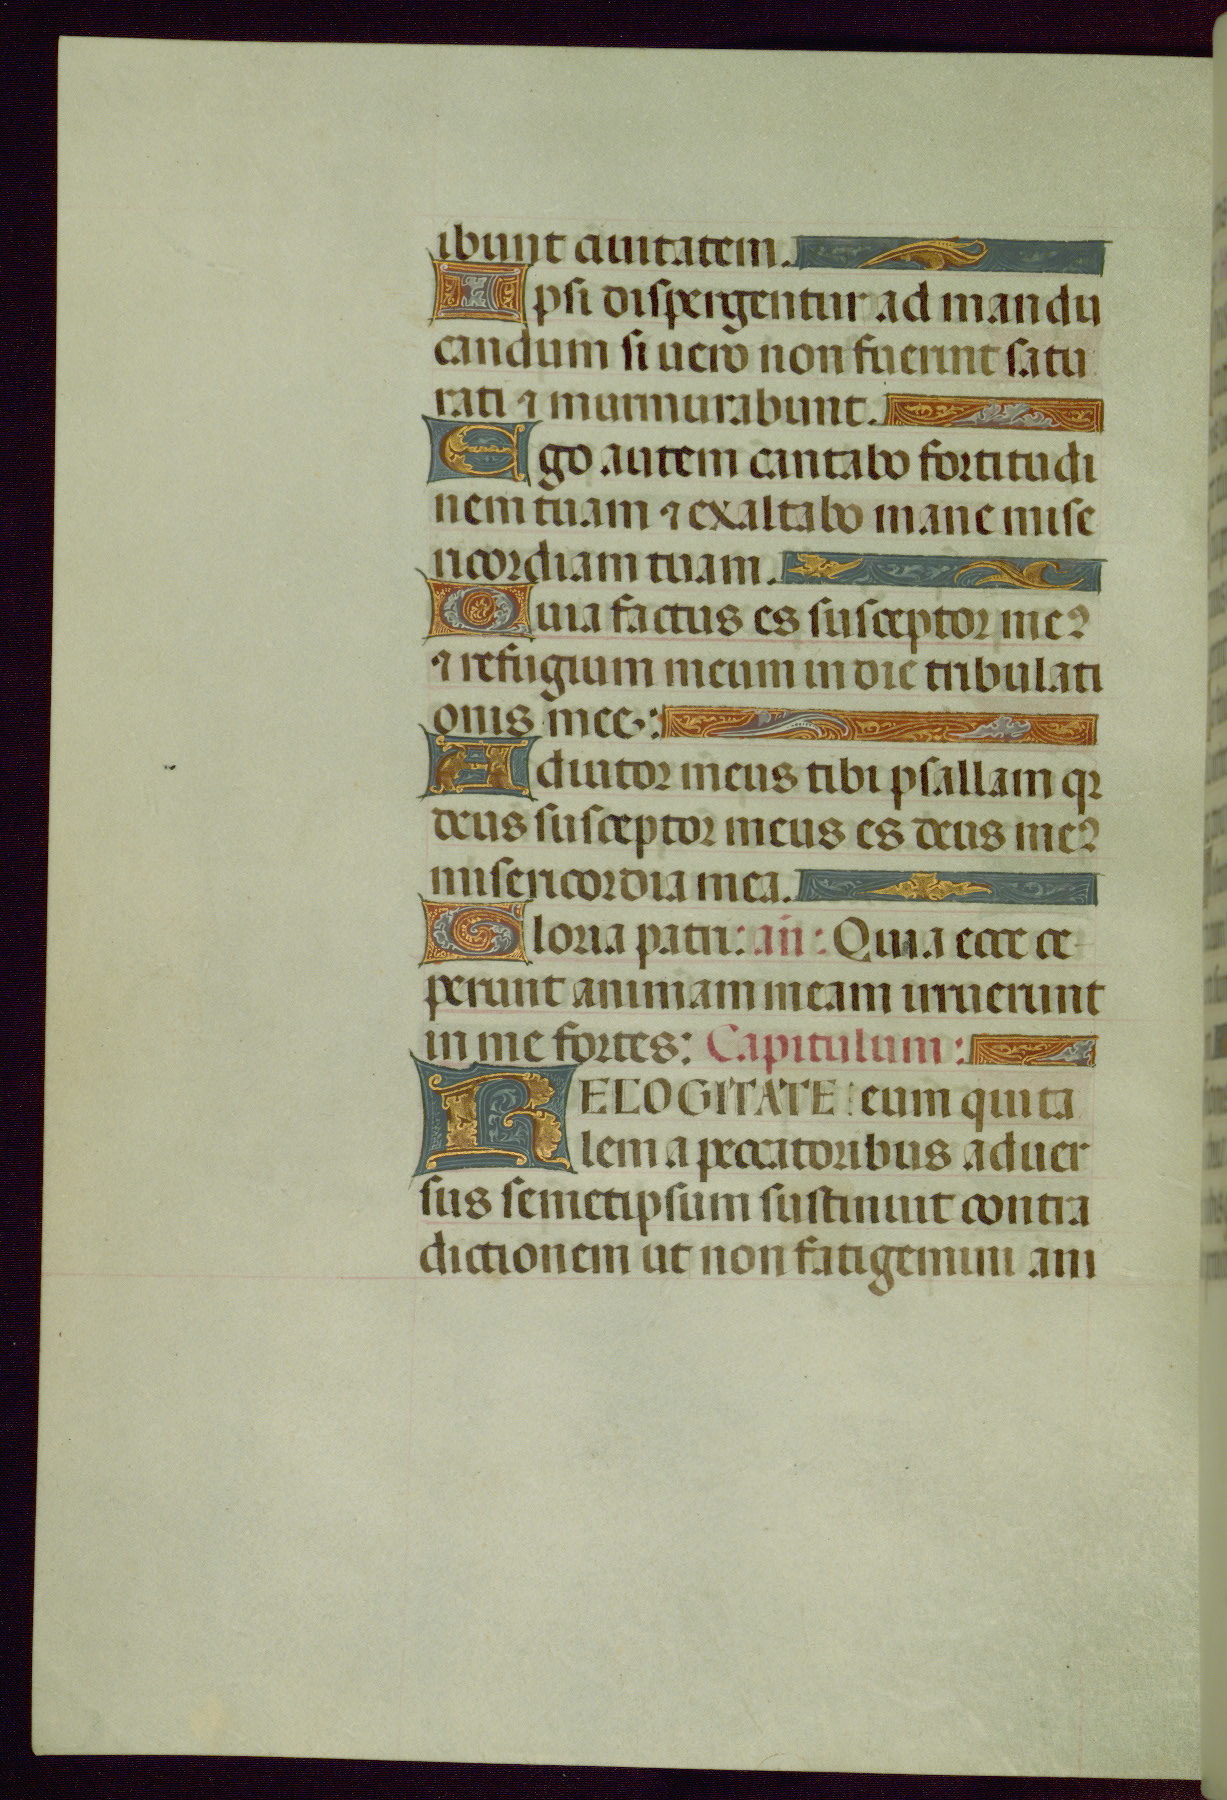 ibunt ciuitatem.
Ipsi dispergentur ad mandu
candum si uero non fuerint satu
rati ⁊ murmurabunt.
Ego autem cantabo fortitudi
nem tuam ⁊ exaltabo mane mise
ricordiam tuam.
Quia factus es susceptor meꝰ
⁊ refugium meum in die tribulati
onis mee:
Adiutor meus tibi psallam qꝛ
deus susceptor meus es deus meꝰ
misericordia mea.
Gloria patri: an̄: Quia ecce ce-
perunt animam meam irruerunt
in me fortes: Capitulum:
RECOGITATE: eum qui ta
lem a peccatoribus aduer
sus semetipsum sustinuit contra
dictionem ut non fatigemini ani